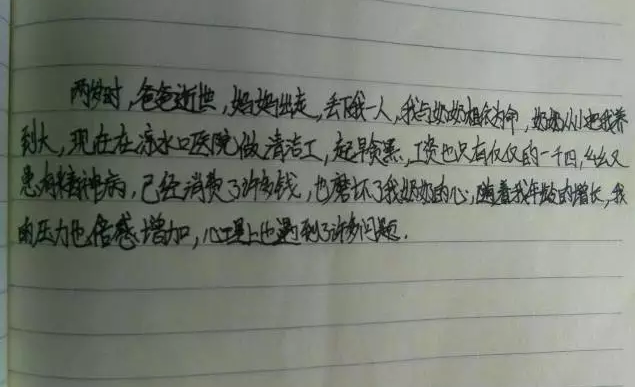 两岁时,爸爸逝世,妈妈出走,丢下我一人,我与奶奶相依为命,奶奶从小把我养
到大,现在在凉水口医院做清洁工,起早贪黑,工资也只有仅仅的一千四,幺幺又
患有精神病,已经消费了许多钱,也磨坏了我奶奶的心,随着我年龄的增长,我
的压力也倍感增加,心理上也遇到了许多问题.